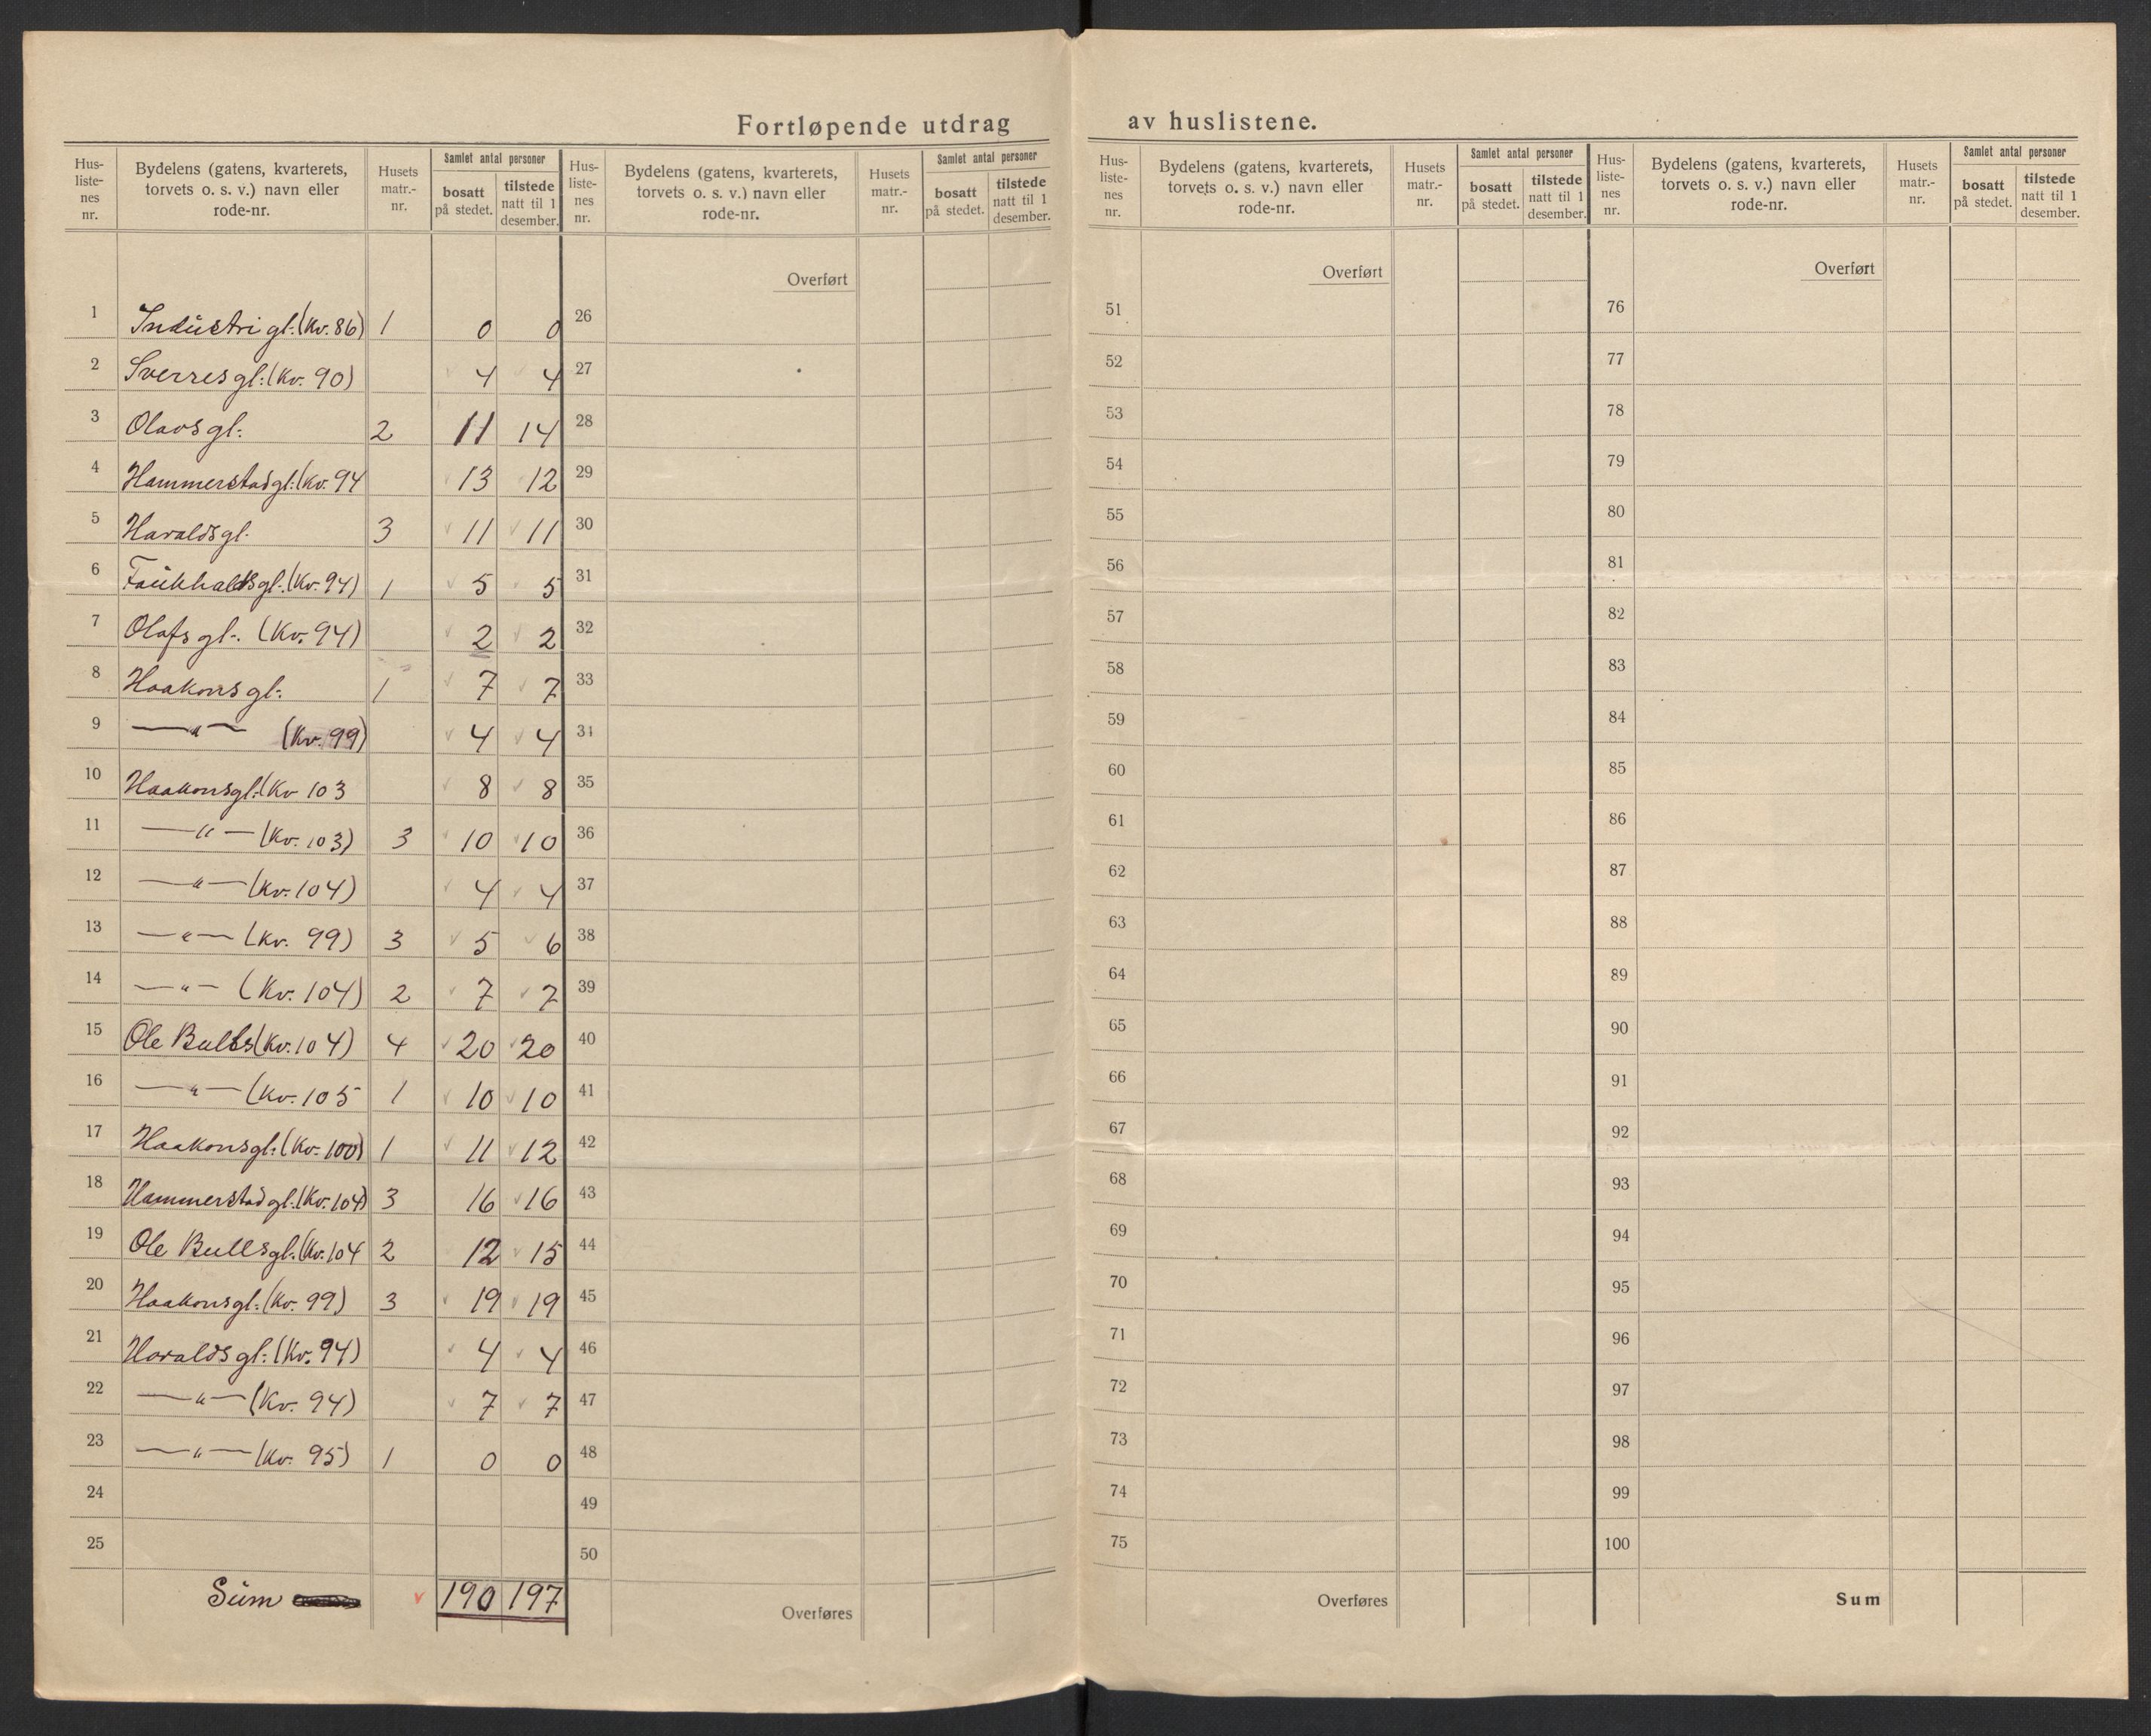 Fortløpende utdrag av huslistene.
Hus-liste-nes nr. | Bydelens (gatens, kvarterets, torvets o. s. v.) navn eller rode-nr. | Husets matr.-nr. | Samlet antal personer | bosatt på stedet. | tilstede natt til 1 desember.
1 Industri gt: (Kv. 86) 1 0 0
2 Sverres gt: (Kv. 90) 4 4
3 Olavs gt: 2 11 14
4 Hammerstad gt: (Kv. 94 13 12
5 Haralds gt. 3 11 11
6 (Kv. 94) 1 5 5
7 Olafs gt. (Kv. 94) 2 2
8 Haakons gt: 1 7 7
9 —"— (Kv. 99) 4 4
10 Haakonsgt: (Kv 103 8 8
11 —"— (Kv. 103) 3 10 10
12 —"— (Kv. 104) 4 4
13 —"— (Kv. 99) 3 5 6
14 —"— (Kv. 104) 2 7 7
15 Ole Bulls (Kv. 104) 4 20 20
16 —"— (Kv. 105 1 10 10
17 Haakonsgt: (Kv. 100) 1 11 12
18 Hammerstad gt. (Kv. 104) 3 16 16
19 Ole Bullsgt. (Kv. 104 2 12 15
20 Haakonsgt: (Kv. 99) 3 19 19
21 Haralds gt: (Kv. 94) 4 4
22 —"— (Kv. 94) 7 7
23 —"— (Kv. 95) 1 0 0
24
25
Sum 190 197
Hus-liste-nes nr. | Bydelens (gatens, kvarterets, torvets o. s. v.) navn eller rode-nr. | Husets matr.-nr. | Samlet antal personer | bosatt på stedet. | tilstede natt til 1 desember.
Overført
26
27
28
29
30
31
32
33
34
35
36
37
38
39
40
41
42
43
44
45
46
47
48
49
50
Overføres
Hus-liste-nes nr. | Bydelens (gatens, kvarterets, torvets o. s. v.) navn eller rode-nr. | Husets matr.-nr. | Samlet antal personer | bosatt på stedet. | tilstede natt til 1 desember.
Overført
51
52
53
54
55
56
57
58
59
60
61
62
63
64
65
66
67
68
69
70
71
72
73
74
75
Overføres
Hus-liste-nes nr. | Bydelens (gatens, kvarterets, torvets o. s. v.) navn eller rode-nr. | Husets matr.-nr. | Samlet antal personer | bosatt på stedet. | tilstede natt til 1 desember.
Overført
76
77
78
79
80
81
82
83
84
85
86
87
88
89
90
91
92
93
94
95
96
97
98
99
100
Sum